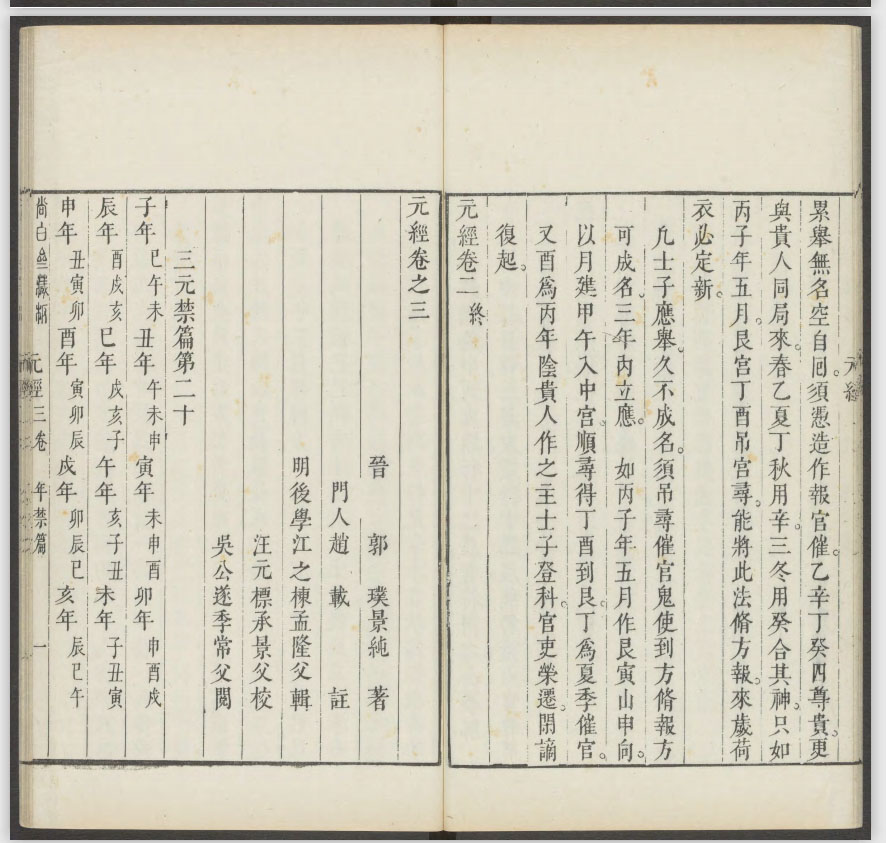 累舉無名空自回。須憑造作報官催。乙辛丁癸四尊貴。更
與貴人同局來。春乙夏丁秋用辛。三冬用癸合其神。只如
丙子年五月。艮宮丁酉吊宮尋。能將此法脩方報。來歲荷
衣必定新。
凢士子應舉。久不成名。須吊尋催官鬼使到方脩報方
可成名。三年內立應。如丙子年五月作艮寅山申向。
以月建甲午入中宮。順尋得丁酉到艮。丁為夏季催官。
又酉為丙年陰貴人作之主士子登科。官吏榮遷。閑謫
復起。
元經卷二 終
元經
元經卷之三
晉 郭 璞景純 著
門人趙 載 註
明後學江之棟孟隆父輯
汪元標承景父校
吳公遂季常父閱
三元禁篇第二十
子年 巳午未 丑年 午未申 寅年 未申酉 卯年 申酉戌
辰年 酉戌亥 巳年 戌亥子 午年 亥子丑 未年 子丑寅
申年 丑寅卯 酉年 寅卯辰 戌年 卯辰巳 亥年 辰巳午
尚白齋鐫 元經三卷 年禁篇 一